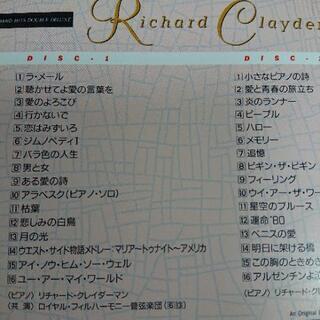 HITS DOUBLE DELUXE
Richard Clayder
DISC - 1
1 ラ・メール
2 聴かせてよ愛の言葉を
3 愛のよろこび
4 行かないで
5 恋はみずいろ
6 ジムノペディ1
7 バラ色の人生
8 男と女
9 ある愛の詩
10 アラベスク(ピアノ・ソロ)
11 枯葉
12 悲しみの白鳥
13 月の光
14 ウエスト・サイド物語メドレー:マリア〜トゥナイト〜アメリカ
15 アイ・ノウ・ヒム・ソー・ウェル
16 ユー・アー・マイ・ワールド
〈ピアノ〉リチャード・クレイダーマン
〈共 演〉ロイヤル・フィルハーモニー管弦楽団(6 13)
DISC -
1 小さなピアノの詩
2 愛と青春の旅立ち
3 炎のランナー
4 ピープル
5 ハロー
6 メモリー
7 追憶
8 ビギン・ザ・ビギン
9 フィーリング
10 ウイ・アー・ザ・ワー
11 星空のブルース
12 運命'80
13 ベニスの愛
14 明日に架ける橋
15 この胸のときめき
16 アルゼンチンよ
〈ピアノ〉リチャード
An Original